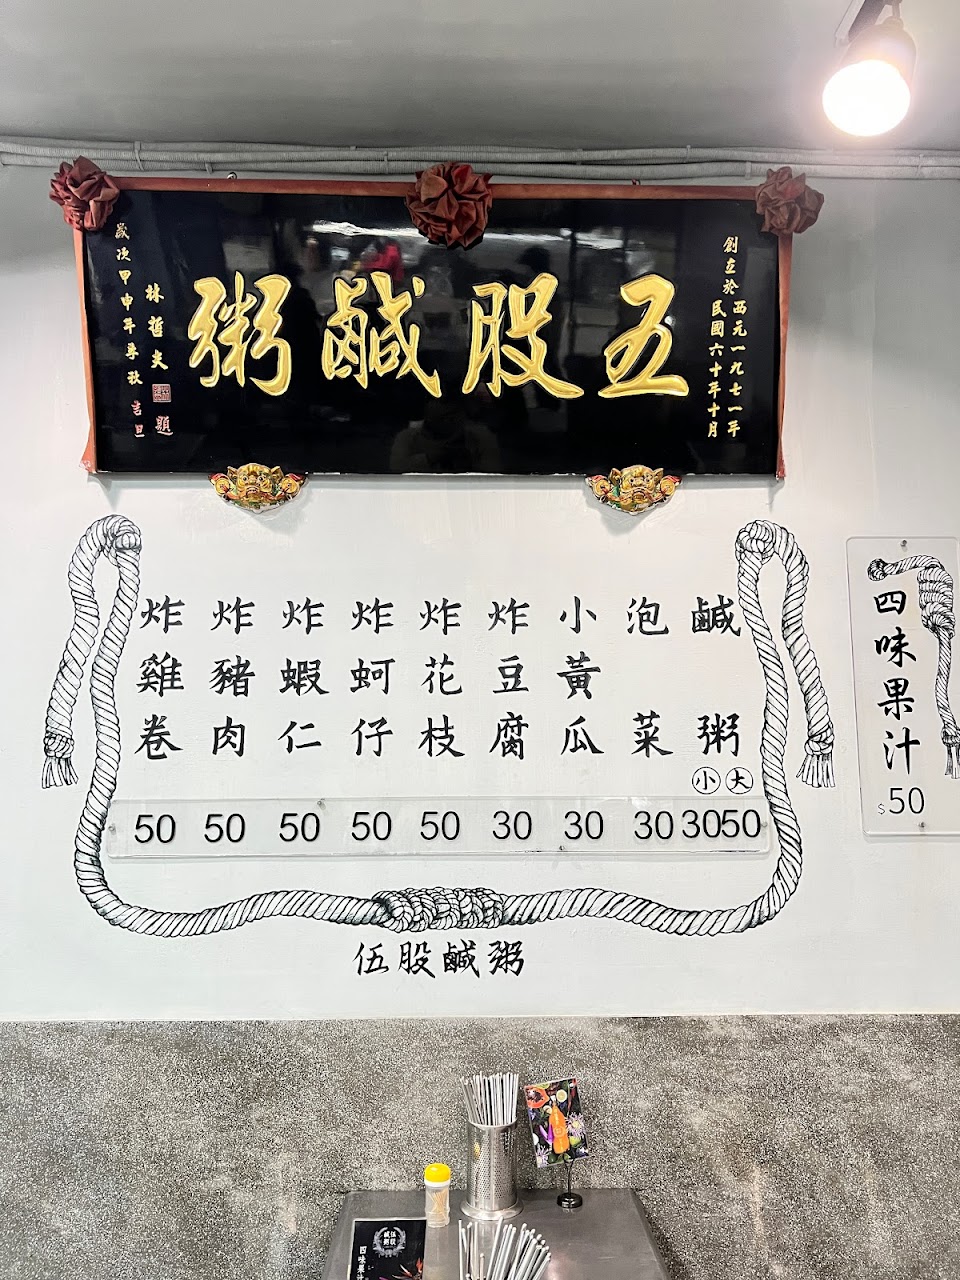 創立於西元一九七一年
民國六十年十月
五股鹹粥
林哲夫
題
歲次甲申年季秋吉旦
鹹粥
小
大
泡菜
小黃瓜
炸豆腐
炸花枝
炸蚵仔
炸蝦仁
炸豬肉
炸雞卷
50 50 50 50 50 30 30 30 30 50
伍股鹹粥
四味果汁
$50
伍股鹹粥
四味果汁